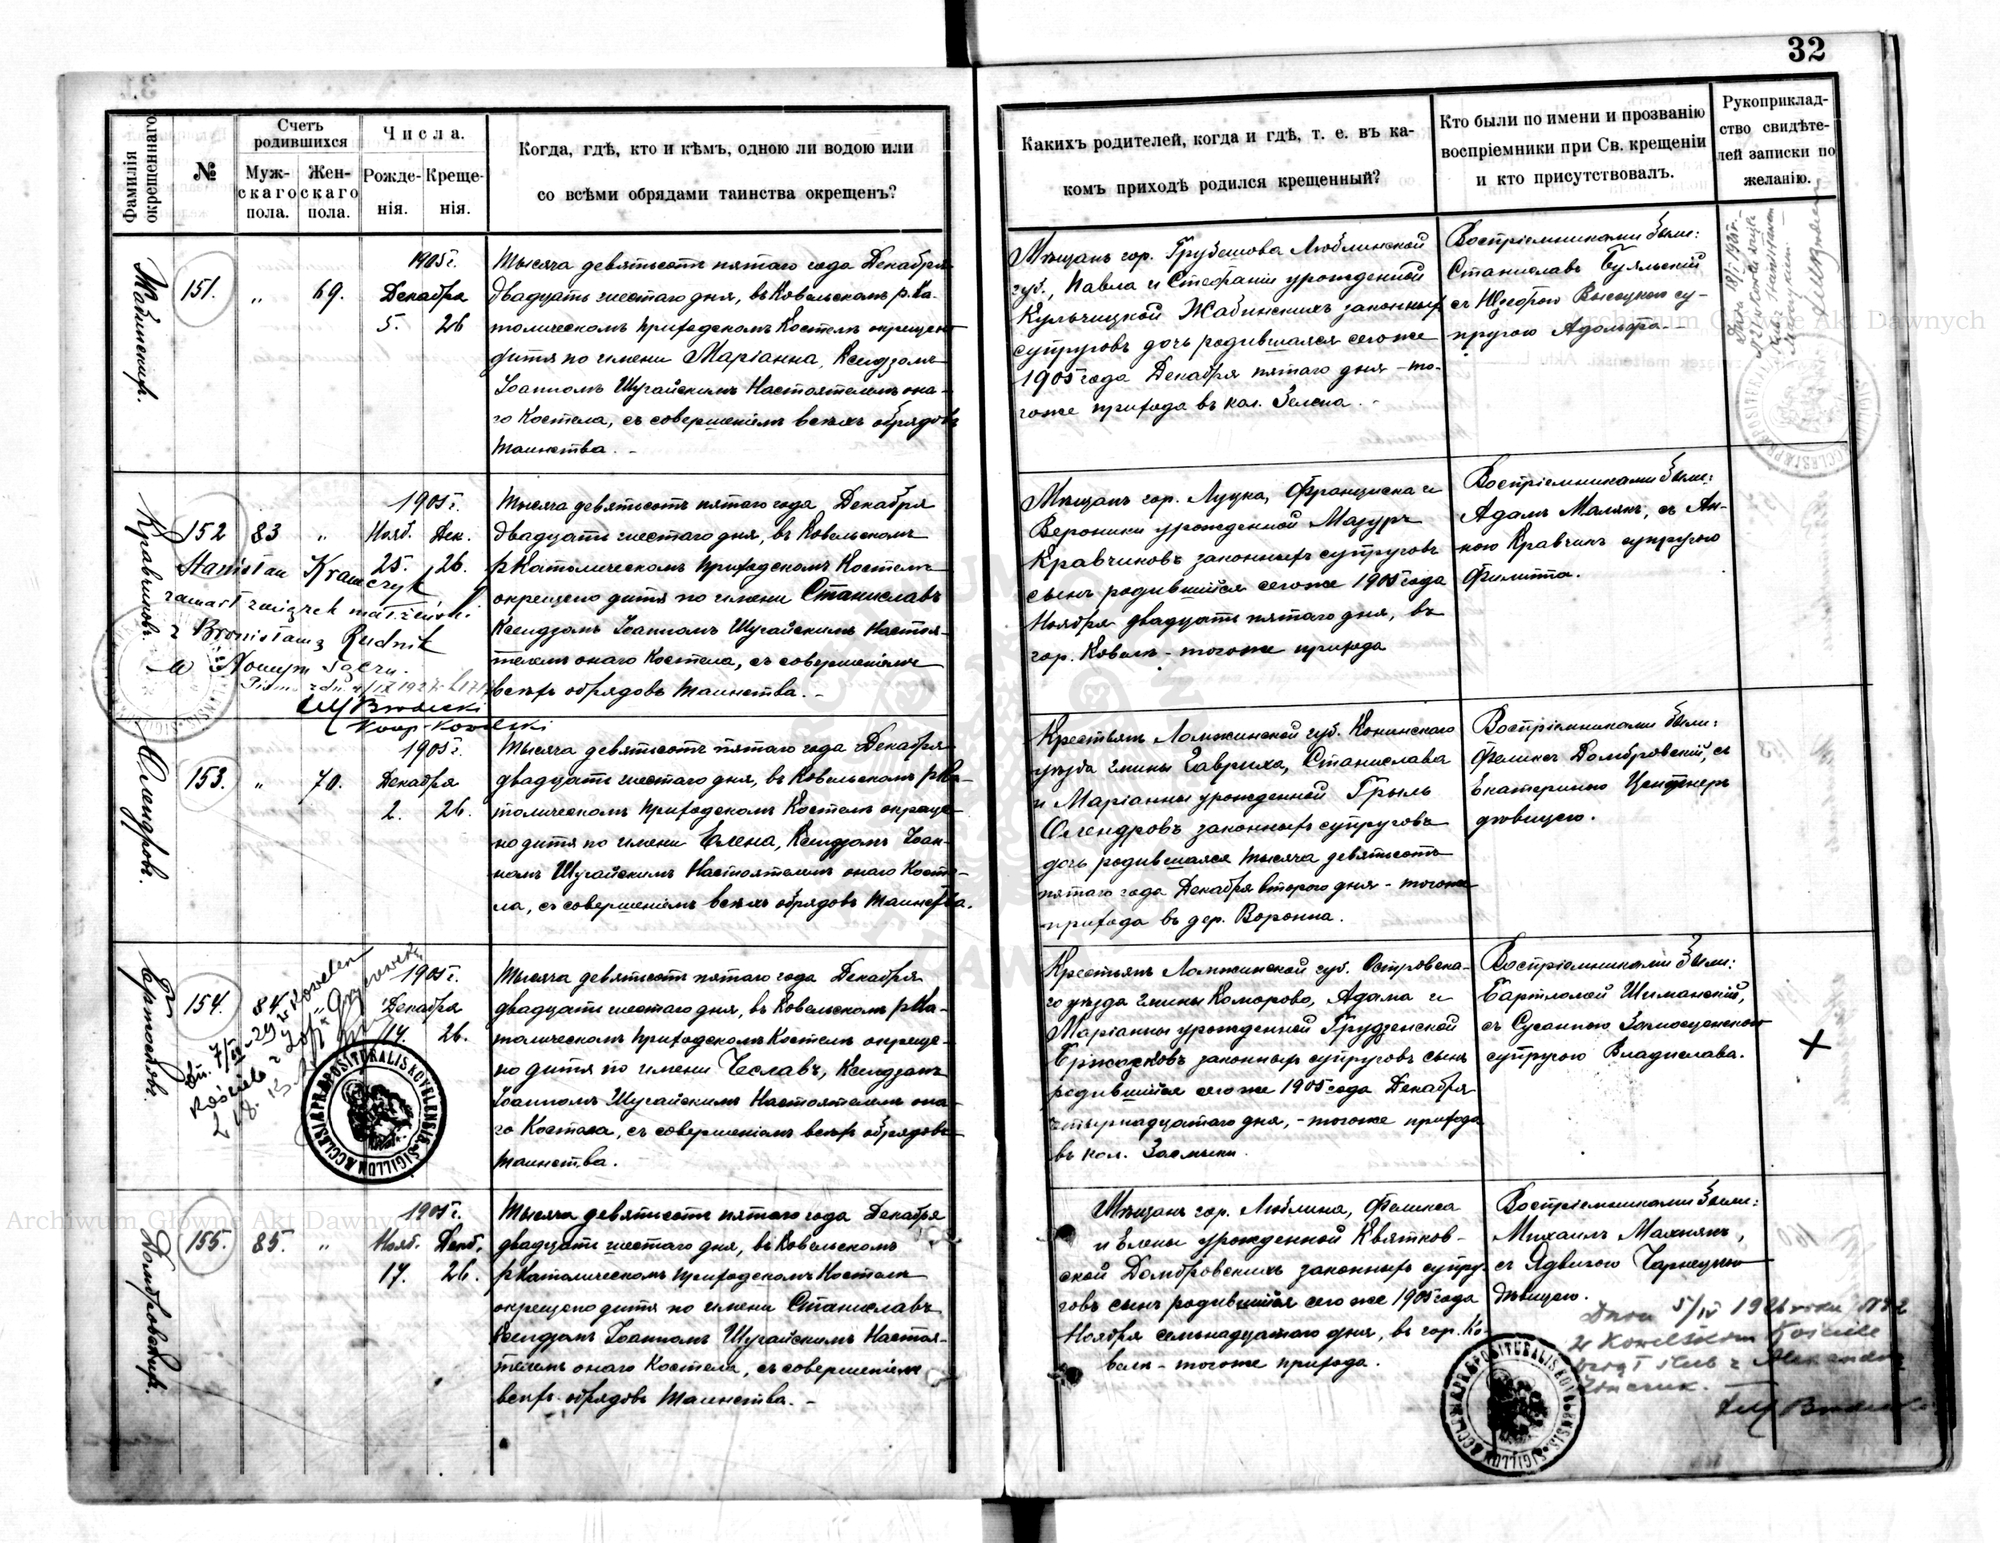 32
Фамилія окрещеннаго.
№
Счетъ родившихся
Муж-
скаго
пола.
Жен-
скаго
пола.
Числа.
Рожде-
нія.
Креще-
нія.
Когда, гдѣ, кто и кѣмъ, одною ли водою или
со всѣми обрядами таинства окрещенъ?
Какихъ родителей, когда и гдѣ, т. е. въ ка-
комъ приходѣ родился крещенный?
Кто были по имени и прозванію
воспріемники при Св. крещеніи
и кто присутствовалъ.
Рукоприклад-
ство свидѣте-
лей записки по
желанію.
151. „ 69.
1905 г.
Декабря
5. 26
Тысяча девятьсотъ пятаго года Декабря
двадцать шестаго дня, въ Ковельскомъ р. Ка-
толическомъ приходскомъ Костелѣ окрещено
дитя по имени Маріанна, Ксендзомъ
Іоанномъ Шугайскимъ Настоятелемъ она-
го Костела, съ совершеніемъ всѣхъ обрядовъ
таинства. -
Мѣщанъ гор. Грубешова Люблинской
губ., Павла и Стефаніи урожденной
Кульчицкой Жабинскихъ законныхъ
супруговъ дочь родившаяся сего же
1905 года Декабря пятаго дня - то-
гоже прихода въ кол. Зелена. -
Воспріемниками были:
Станиславъ Буяльскій
съ Юзефою Высоцкою су-
пругою Адольфа. -
Кравчиковъ.
152 83 „
1905 г.
Нояб. Дек.
25. 26.
Stanisław Krawczyk
zawarł związek małżeński
z Bronisławą Rudnik
w Nowym
Тысяча девятьсотъ пятаго года Декабря
двадцать шестаго дня, въ Ковельскомъ
р Католическомъ приходскомъ Костелѣ
окрещено дитя по имени Станиславъ
Ксендзомъ Іоанномъ Шугайскимъ Настоя-
телемъ онаго Костела, съ совершеніемъ
всѣхъ обрядовъ таинства. -
Мѣщанъ гор. Луцка, Франциска и
Вероники урожденной Мазуръ
Кравчиковъ законныхъ супруговъ
сынъ родившійся сего же 1905 года
Ноября двадцать пятаго дня, въ
гор. Ковелѣ - тогоже прихода
Воспріемниками были:
Адамъ Малякъ, съ Ан-
ною Кравчикъ супругою
Филиппа.
Олендровъ.
153. „ 70.
1905 г.
Декабря
2. 26.
Тысяча девятьсотъ пятаго года Декабря
двадцать шестаго дня, въ Ковельскомъ р Ка-
толическомъ приходскомъ Костелѣ окреще-
но дитя по имени Елена, Ксендзомъ Іоан-
номъ Шугайскимъ Настоятелемъ онаго Косте-
ла, съ совершеніемъ всѣхъ обрядовъ таинства.
Крестьянъ Ломжинской губ.
уѣзда гмины Гавриха, Станислава
и Маріанны урожденной Грыль
Олендровъ законныхъ супруговъ
дочь родившаяся тысяча девятьсотъ
пятаго года Декабря втораго дня - тогоже
прихода въ дер. Воронна.
Воспріемниками были:
Феликсъ Домбровскій, съ
Екатериною
дѣвицею.
154. 84
1905 г.
Декабря
14. 26.
Тысяча девятьсотъ пятаго года Декабря
двадцать шестаго дня, въ Ковельскомъ р Ка-
толическомъ приходскомъ Костелѣ окреще-
но дитя по имени Чеславъ, Ксендзомъ
Іоанномъ Шугайскимъ Настоятелемъ она-
го Костела, съ совершеніемъ всѣхъ обрядовъ
таинства.
Крестьянъ Ломжинской губ. Островска-
го уѣзда гмины Коморово, Адама и
Маріанны урожденной Грудзенской
законныхъ супруговъ сынъ
родившійся сего же 1905 года Декабря
четырнадцатаго дня, - тогоже прихода
въ кол.
Воспріемниками были:
Бартломей Шиманскій,
съ Сусанною
супругою Владислава.
SIGILLUM ECCLESIÆ PRÆPOSITURALIS KOVELENSIS
Домбровскихъ.
155. 85. „
1905 г.
Нояб. Декб.
17. 26.
Тысяча девятьсотъ пятаго года Декабря
двадцать шестаго дня, въ Ковельскомъ
р Католическомъ приходскомъ Костелѣ
окрещено дитя по имени Станиславъ
Ксендзомъ Іоанномъ Шугайскимъ Настоя-
телемъ онаго Костела, съ совершеніемъ
всѣхъ обрядовъ таинства. -
Мѣщанъ гор. Люблина, Феликса
и Елены урожденной Квятков-
ской Домбровскихъ законныхъ супру-
говъ сынъ родившійся сего же 1905 года
Ноября семьнадцатаго дня, въ гор. Ко-
велѣ - тогоже прихода.
Воспріемниками были:
Михаилъ Махнякъ,
съ Ядвигою
дѣвицею.
Dnia 5/IV 1926 roku
w Kowelskim Kościele
wziął ślub z
Archiwum Główne Akt Dawnych
Archiwum Główne Akt Dawnych